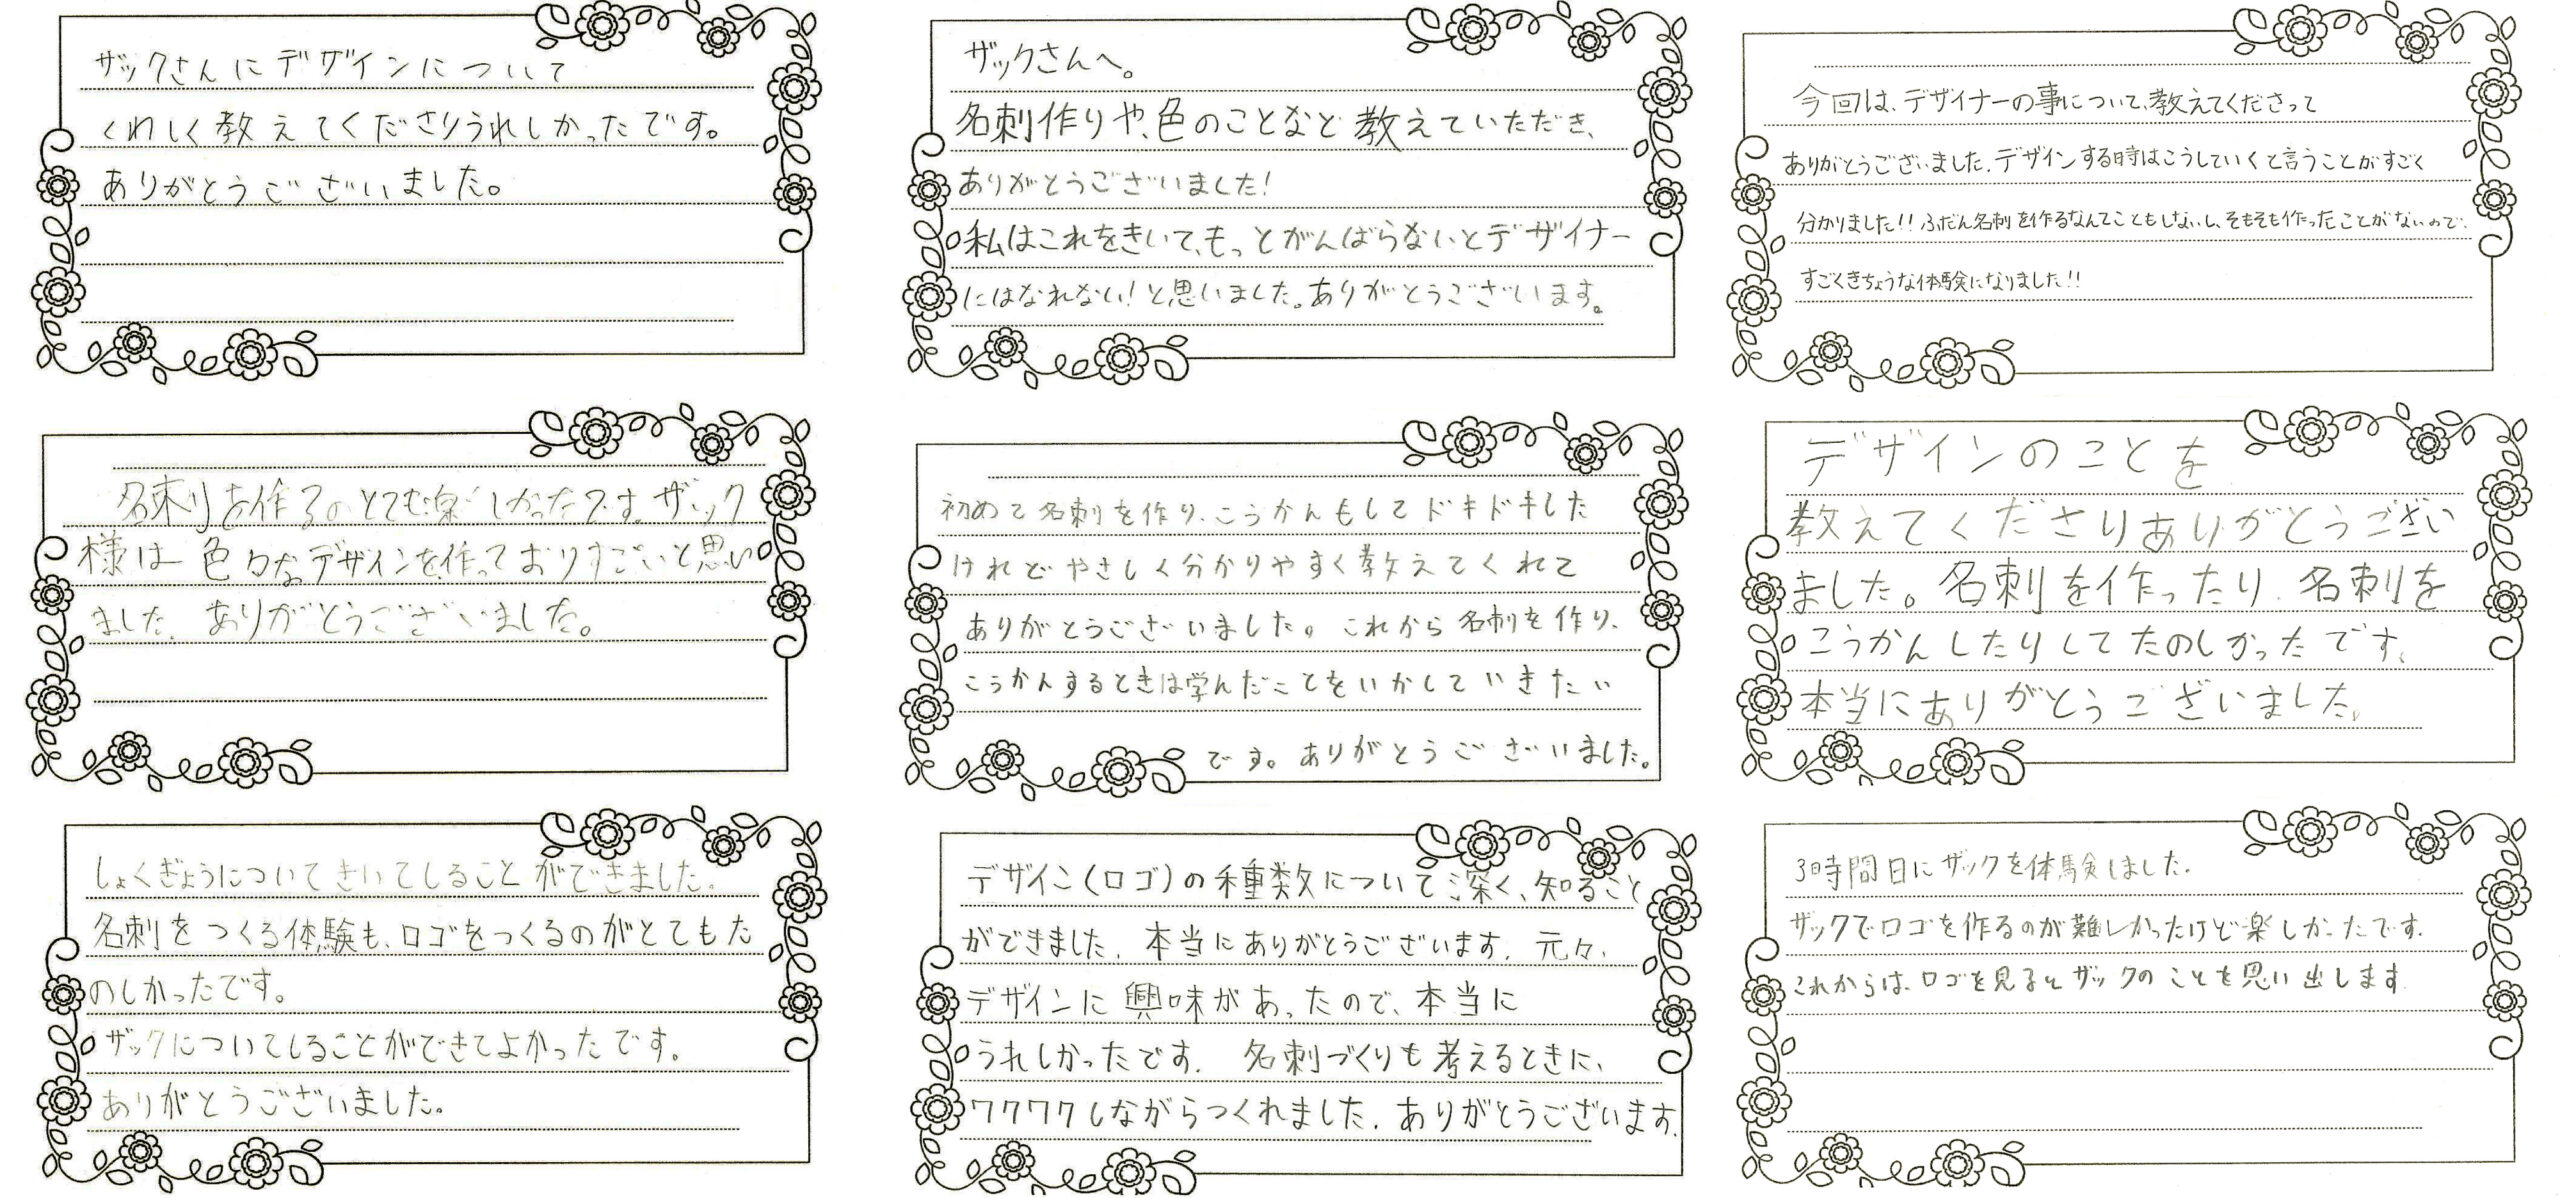 ザックさんにデザインについて
くわしく教えてくださりうれしかったです。
ありがとうございました。
ザックさんへ。
名刺作りや、色のことなど教えていただき、
ありがとうございました!
私はこれをきいて、もっとがんばらないとデザイナー
にはなれない!と思いました。ありがとうございます。
今回は、デザイナーの事について、教えてくださって
ありがとうございました。デザインする時はこうしていくと言うことがすごく
分かりました!!ふだん名刺を作るなんてこともしないし、そもそも作ったことがないので、
すごくきちょうな体験になりました!!
名刺を作るのとても楽しかったです。ザック
様は色々なデザインを作っておりすごいと思い
ました。ありがとうございました。
初めて名刺を作り、こうかんもしてドキドキした
けれどやさしく分かりやすく教えてくれて
ありがとうございました。これから名刺を作り、
こうかんするときは学んだことをいかしていきたい
です。ありがとうございました。
デザインのことを
教えてくださりありがとうござい
ました。名刺を作ったり、名刺を
こうかんしたりしてたのしかったです。
本当にありがとうございました。
しょくぎょうについてきいてしることができました。
名刺をつくる体験も、ロゴをつくるのがとてもた
のしかったです。
ザックについてしることができてよかったです。
ありがとうございました。
デザイン(ロゴ)の種類数について深く、知ること
ができました。本当にありがとうございます。元々、
デザインに興味があったので、本当に
うれしかったです。名刺づくりも考えるときに、
ワクワクしながらつくれました。ありがとうございます。
3時間目にザックを体験しました。
ザックでロゴを作るのが難しかったけど楽しかったです。
これからは、ロゴを見るとザックのことを思い出します